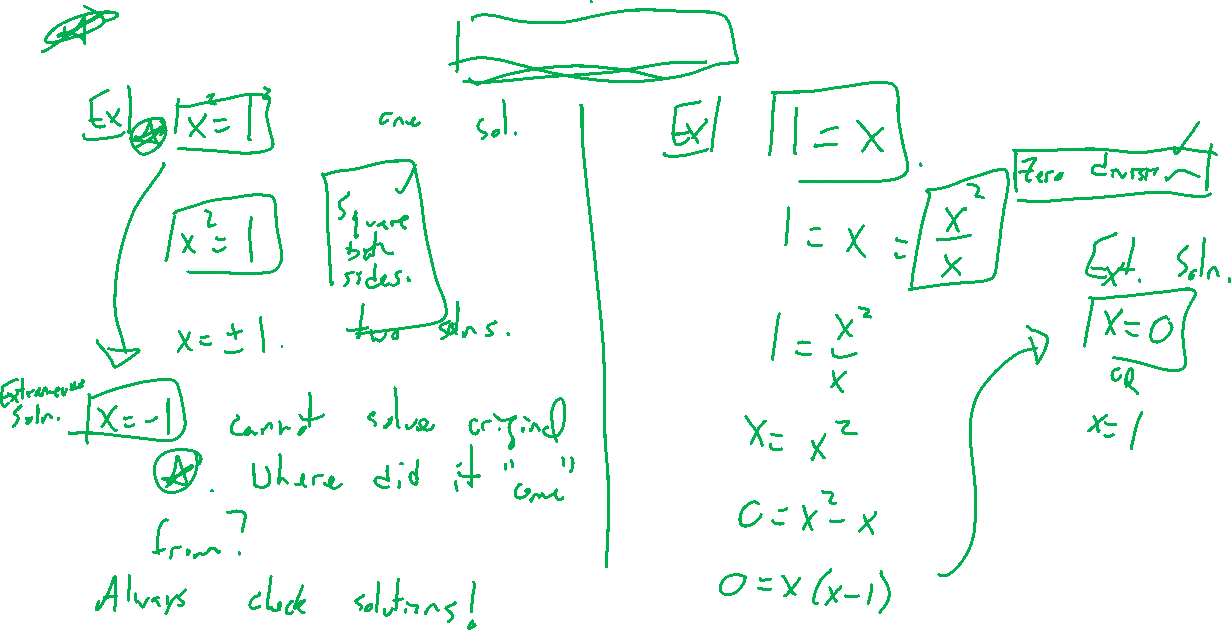 Ex
x² = 1²
one sol.
x² = 1
square
both
sides.
x = ± 1.
two solns.
Extraneous
soln.
x = -1 cannot solve original
A. Where did it "come"
from?
Always check solutions!
Ex
1 = x.
1 = x = x²/x
1 = x²/x
x = x²
0 = x² - x
0 = x(x-1)
Zero division
Ext. Soln.
x = 0
OR
x = 1